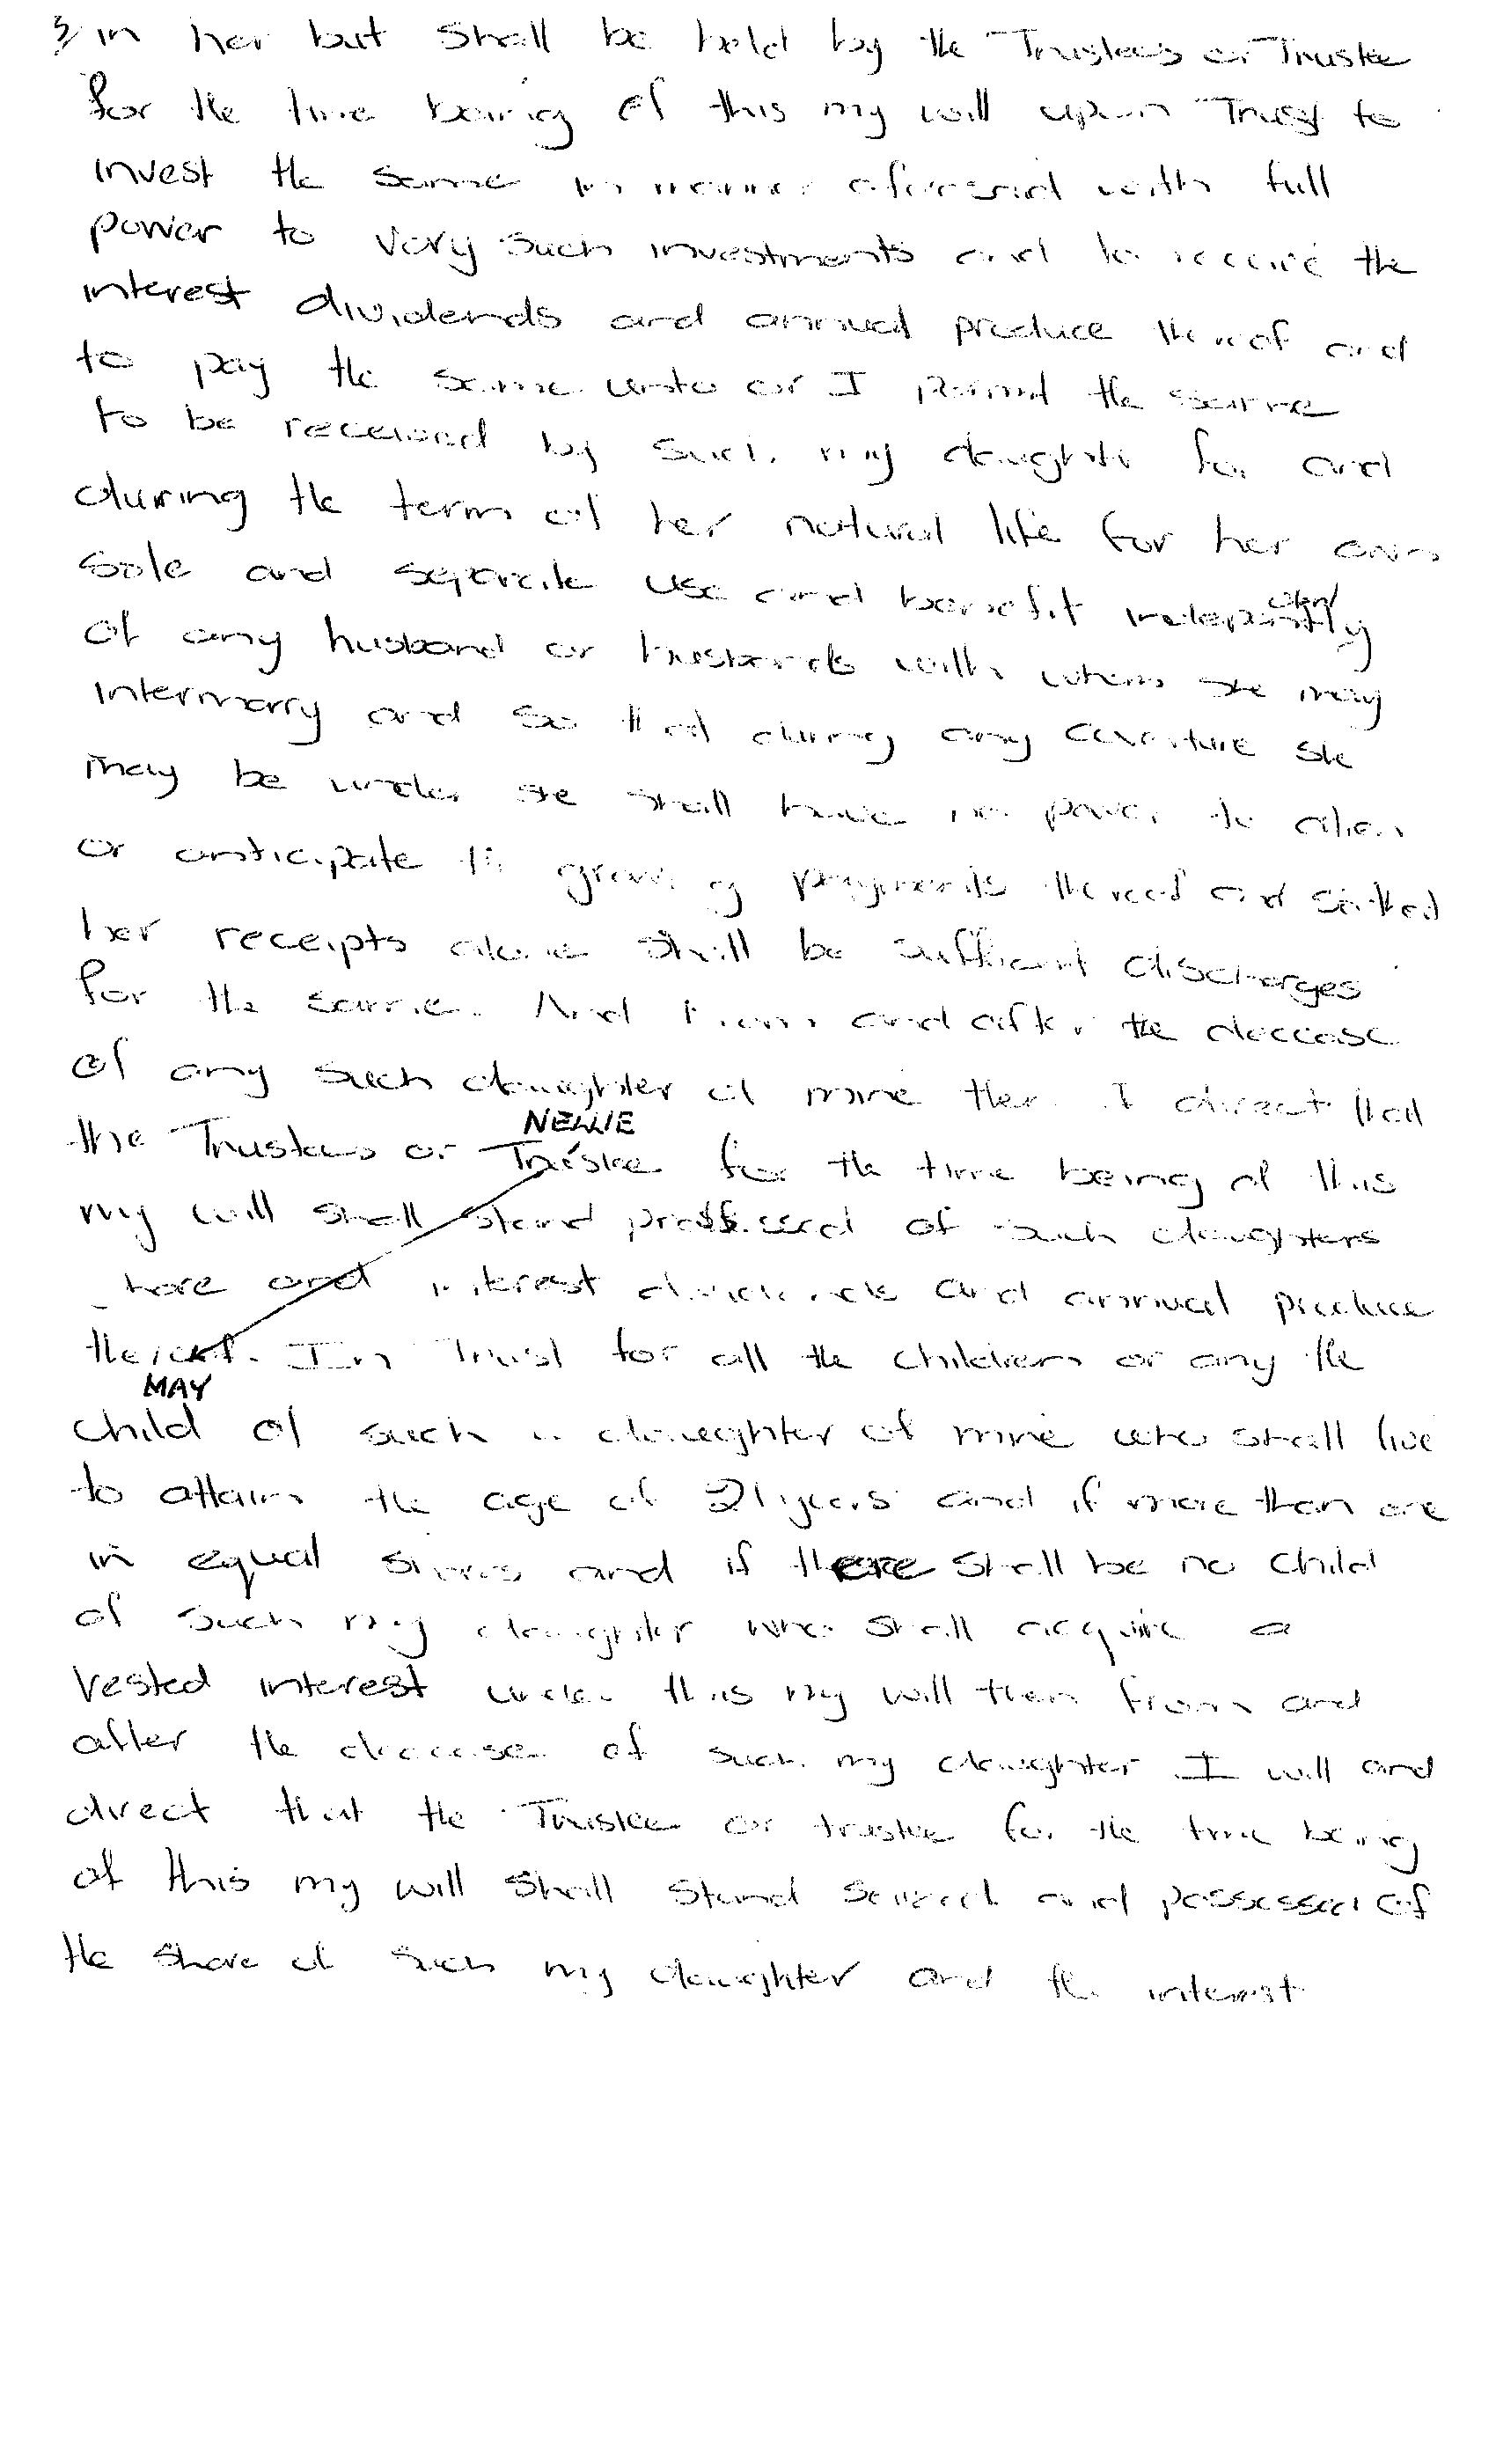 3/ in her but shall be held by the Trustees or Trustee
for the time being of this my will upon Trust to
invest the same in manner aforesaid with full
power to vary such investments and to receive the
interest dividends and annual produce thereof and
to pay the same unto or I permit the same
to be received by such my daughter for and
during the term of her natural life for her own
sole and separate use and benefit independently
of any husband or husbands with whom she may
intermarry and so that during any coverture she
may be under she shall have no power to alien
or anticipate the growing payments thereof and so that
her receipts alone shall be sufficient discharges
for the same. And from and after the decease
of any such daughter of mine then I direct that
NELLIE
the Trustees or Trustee for the time being of this
my will shall stand of such daughters
share and interest dividends and annual produce
thereof. In Trust for all the children or any the
MAY
child of such a daughter of mine who shall live
to attain the age of 21 years and if more than one
in equal shares and if there shall be no child
of such my daughter who shall acquire a
vested interest under this my will then from and
after the decease of such my daughter I will and
direct that the Trustee or trustee for the time being
of this my will shall stand seized and possessed of
the share of such my daughter and the interest